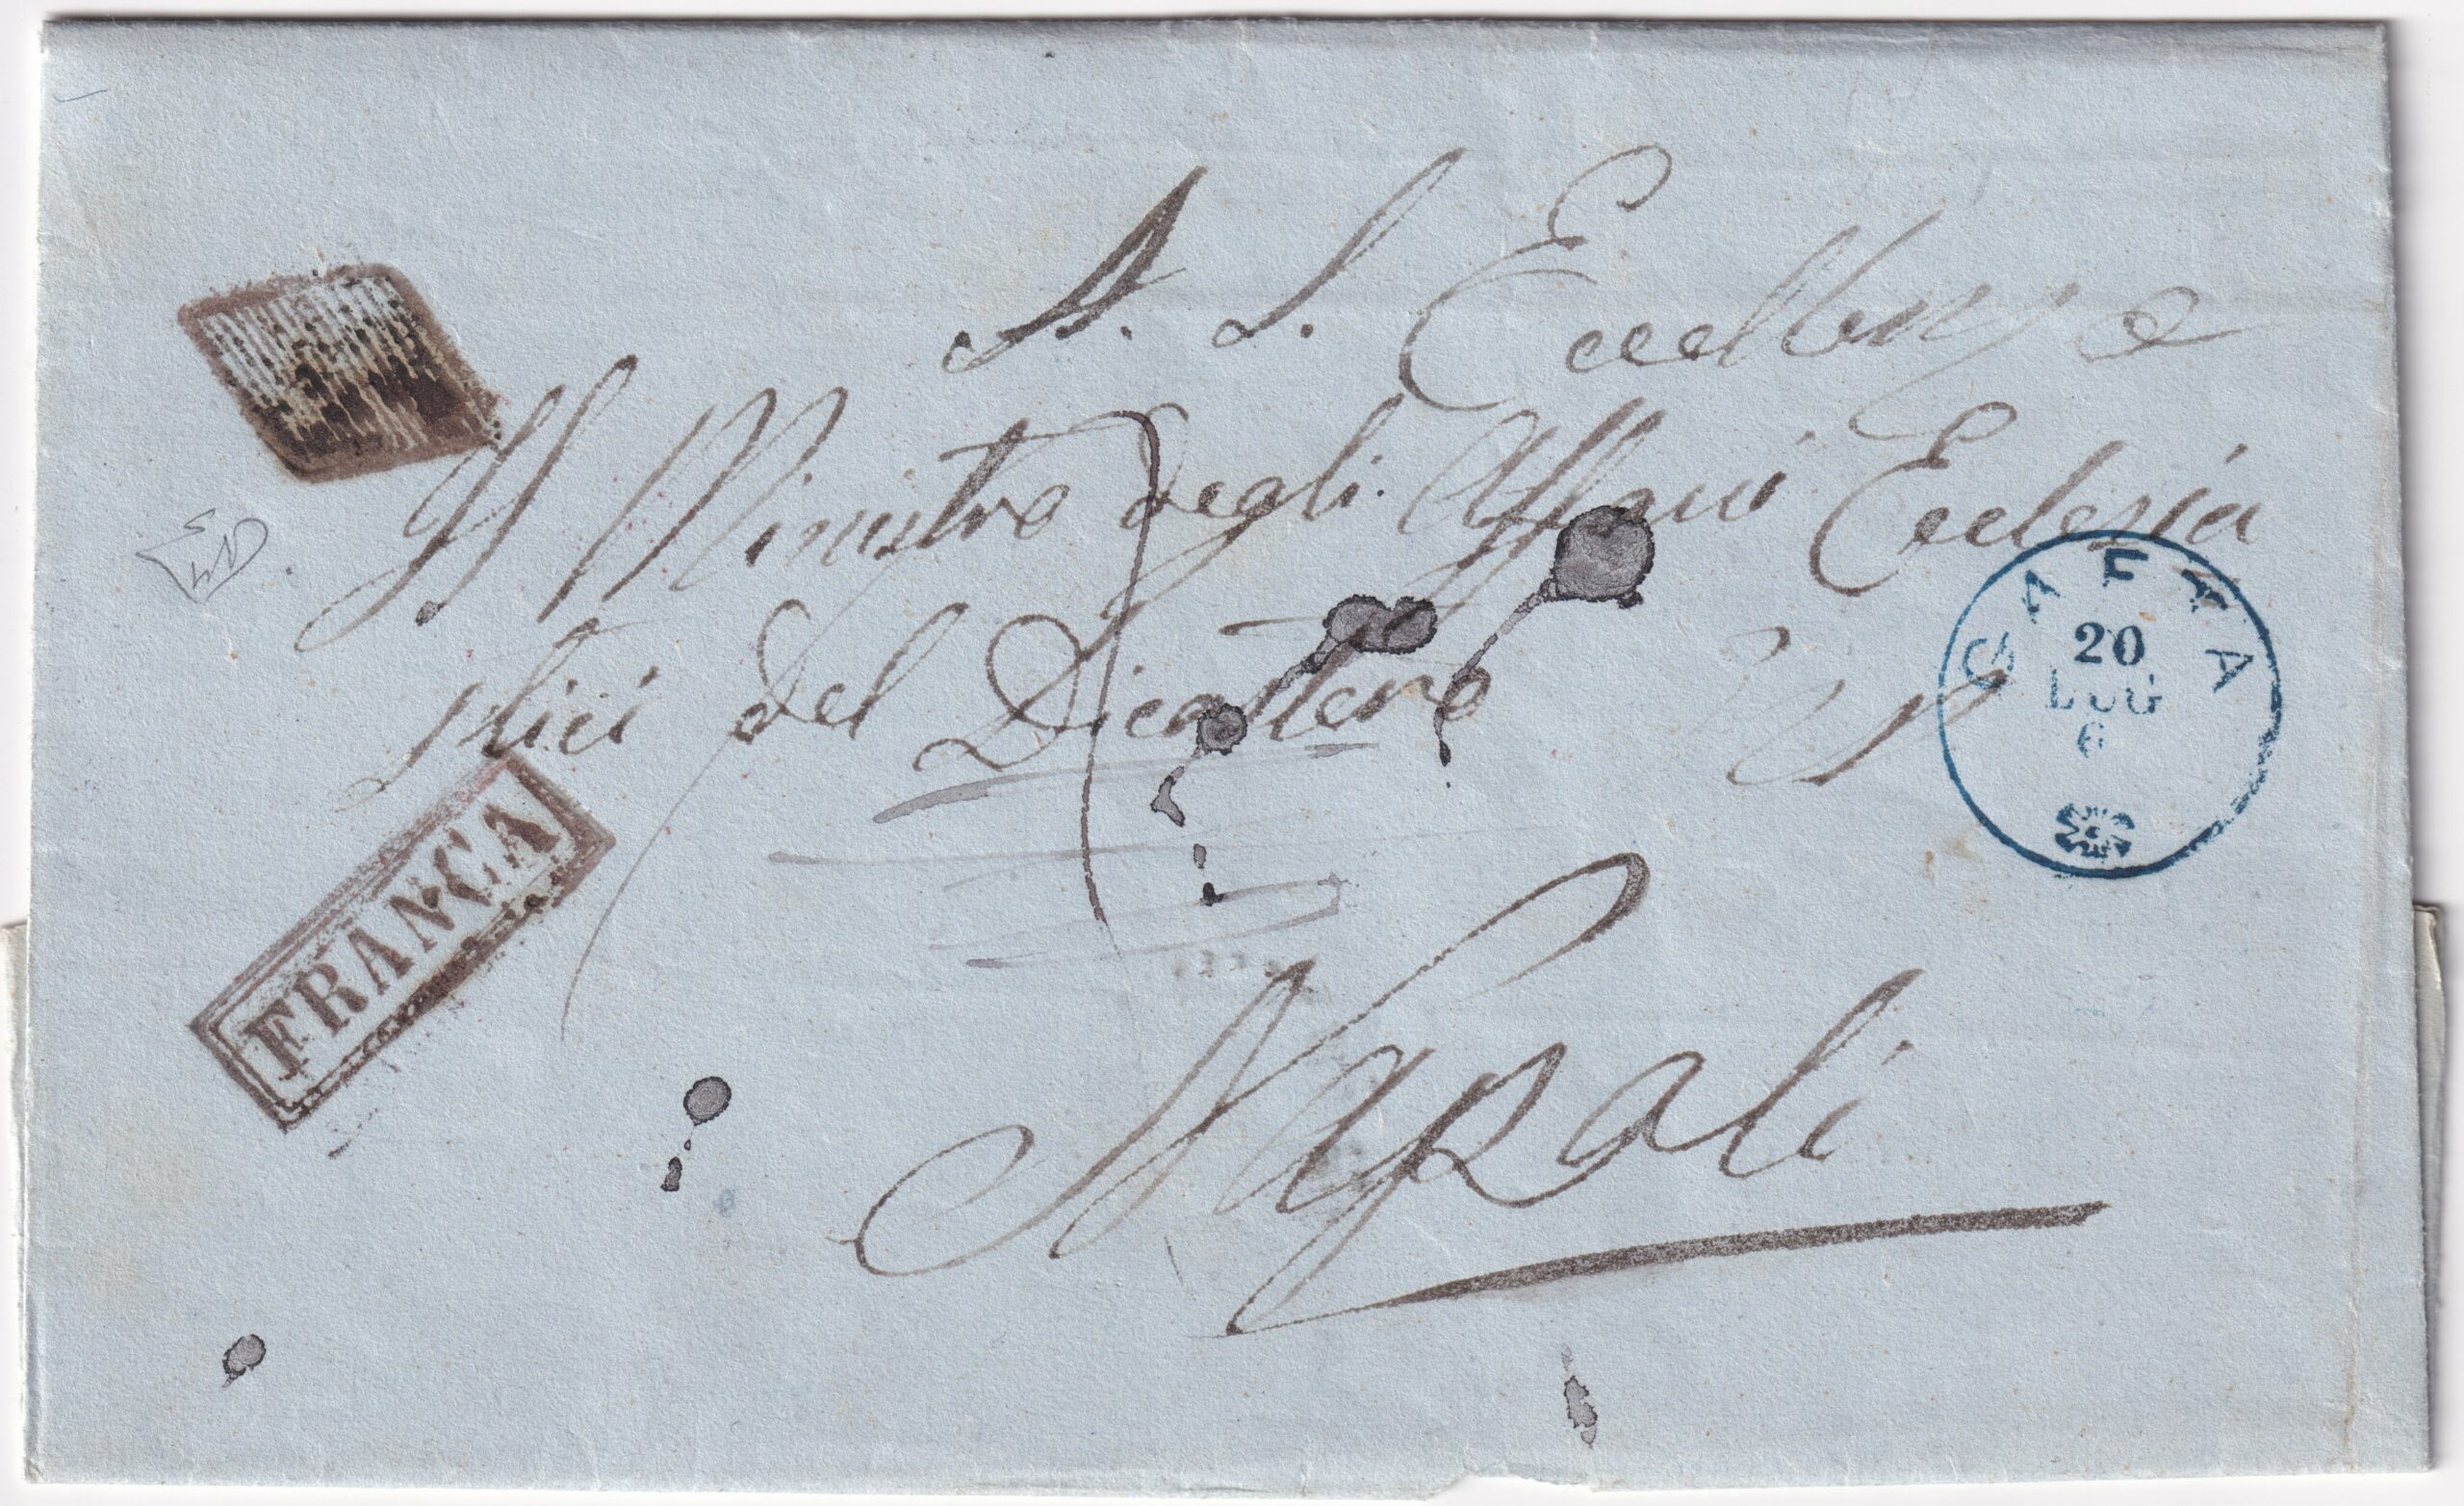 A. S. Eccellenza
Il Ministro degli Affari Ecclesia
stici del Dicastero
Napoli
FRANCA
GAETA
20
LUG
6